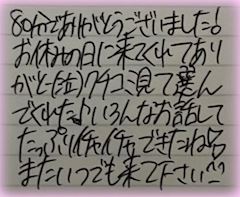 80分でありがとうございました!
お休みの日に来てくれてあり
がと(泣)クチコミ見て選ん
でくれた♪いろんなお話して
たっぷりイチャイチャできたね
またいつでも来て下さい^^